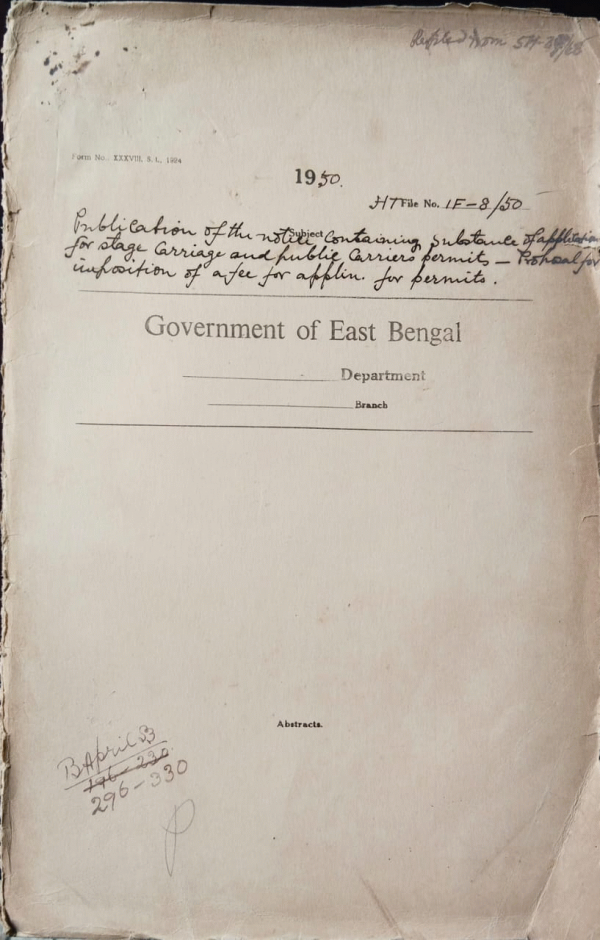 from 54
Form No. XXXVIII, S. L., 1924
1950.
HT File No. 1F-8/50
Subject
Publication of the notice containing substance of application
for stage carriage and public carriers permits — Proposal for
imposition of a fee for applin. for permits.
Government of East Bengal
Department
Branch
Abstracts.
B April 53
196-230
296-330